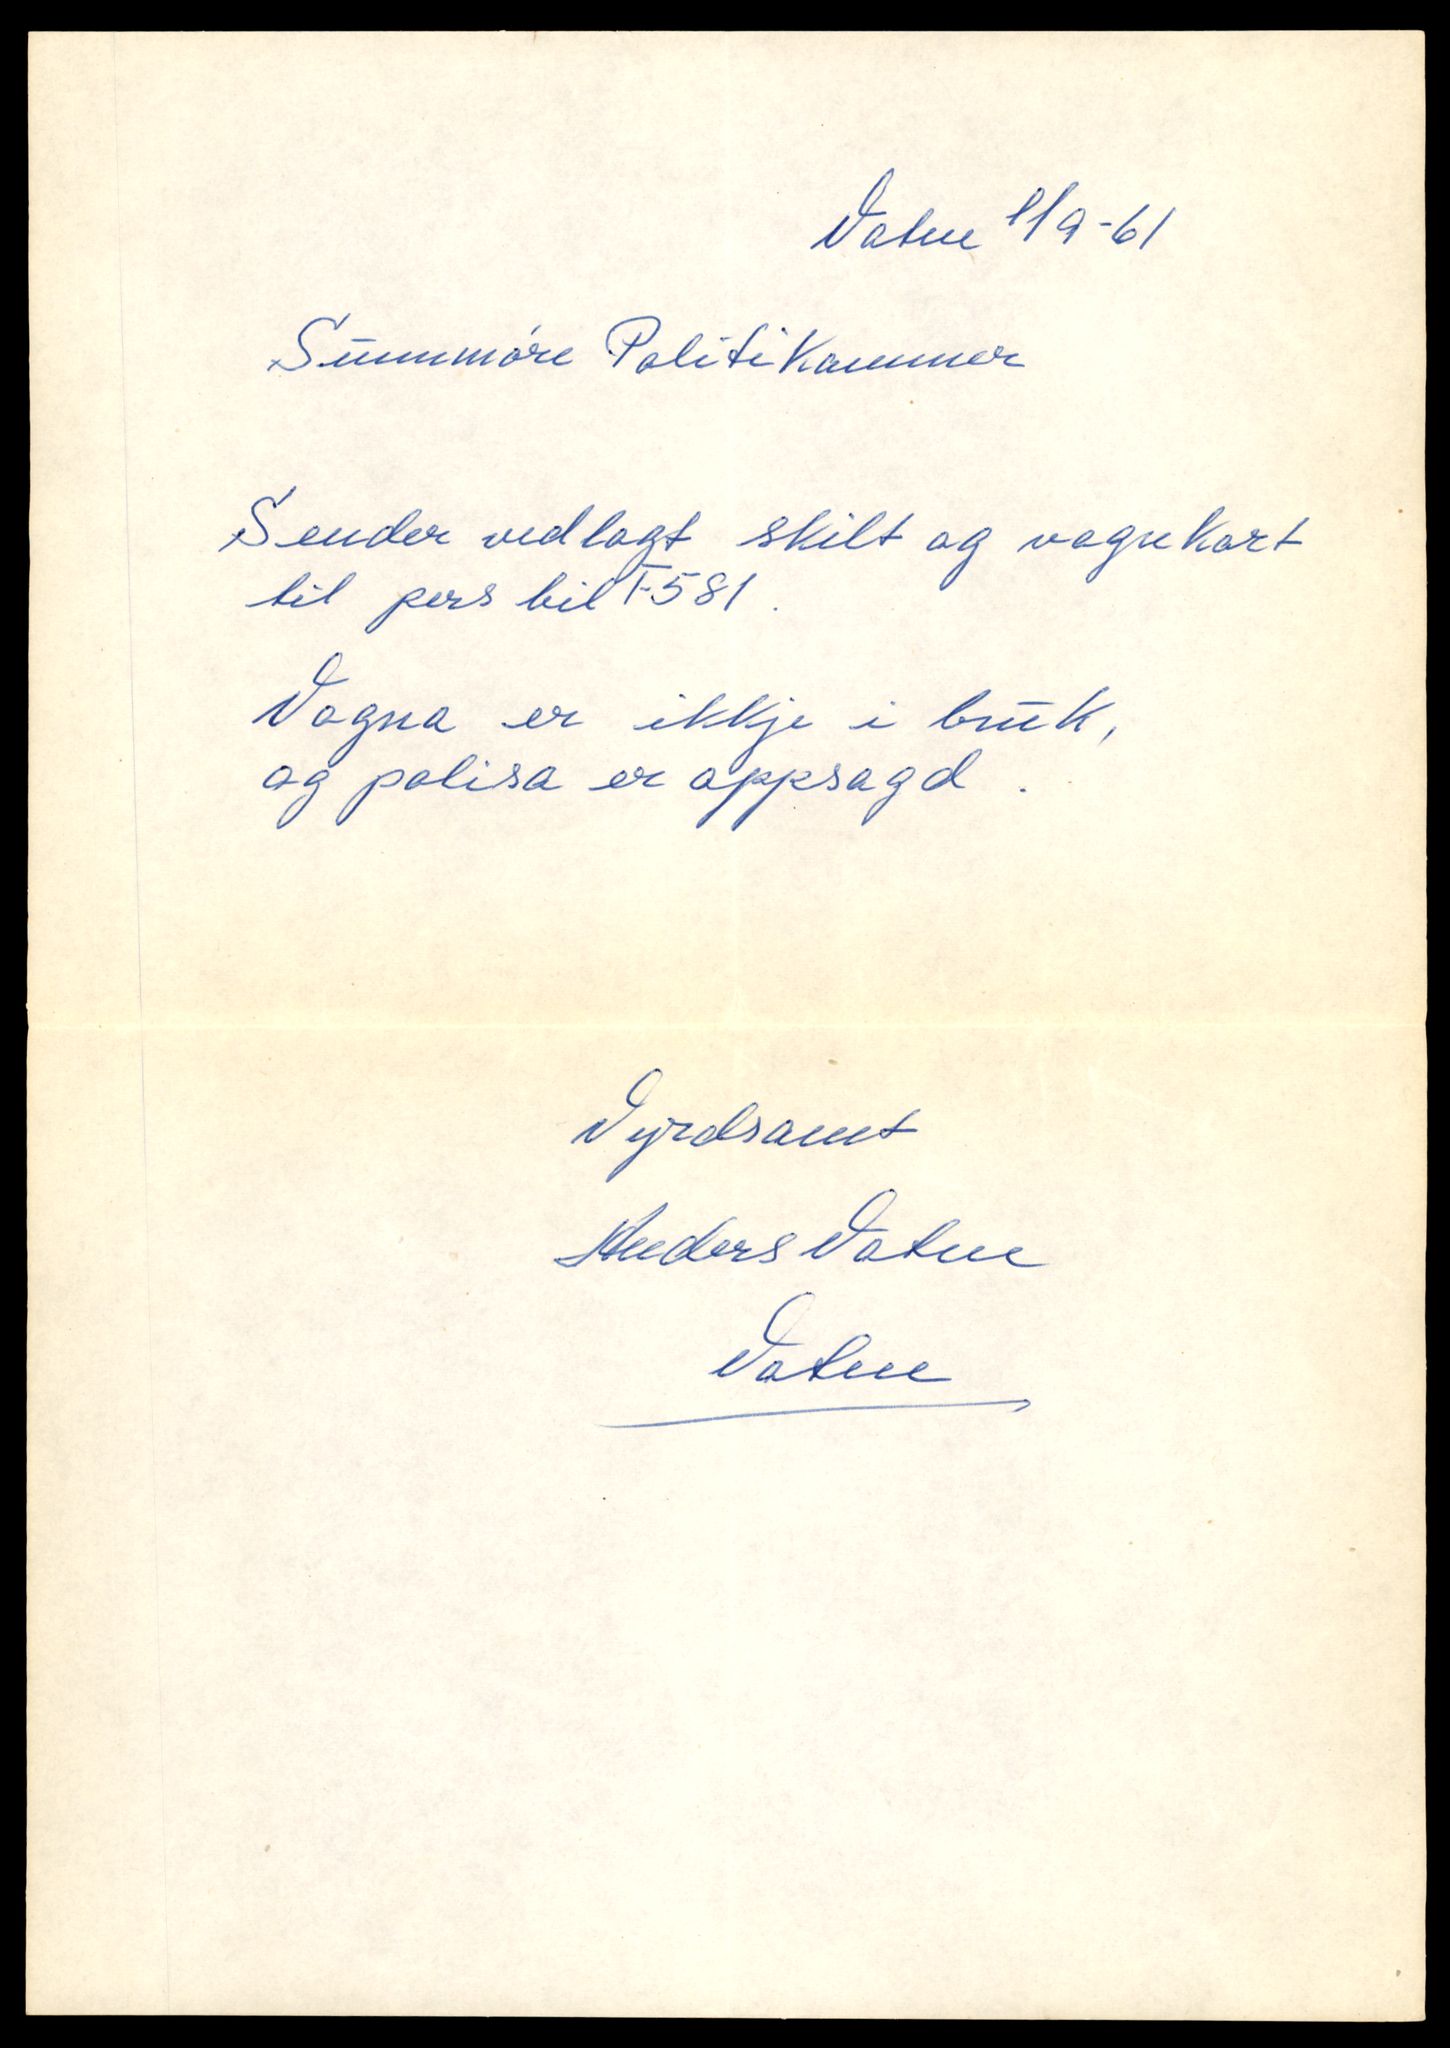 Vatne 1/9-61
Sunnmøre Politikammer
Sender vedlagt skilt og vognkort
til pers bil T-581.
Vogna er ikkje i bruk,
og polisa er oppsagd.
Vyrdsamt
Anders Vatne
Vatne